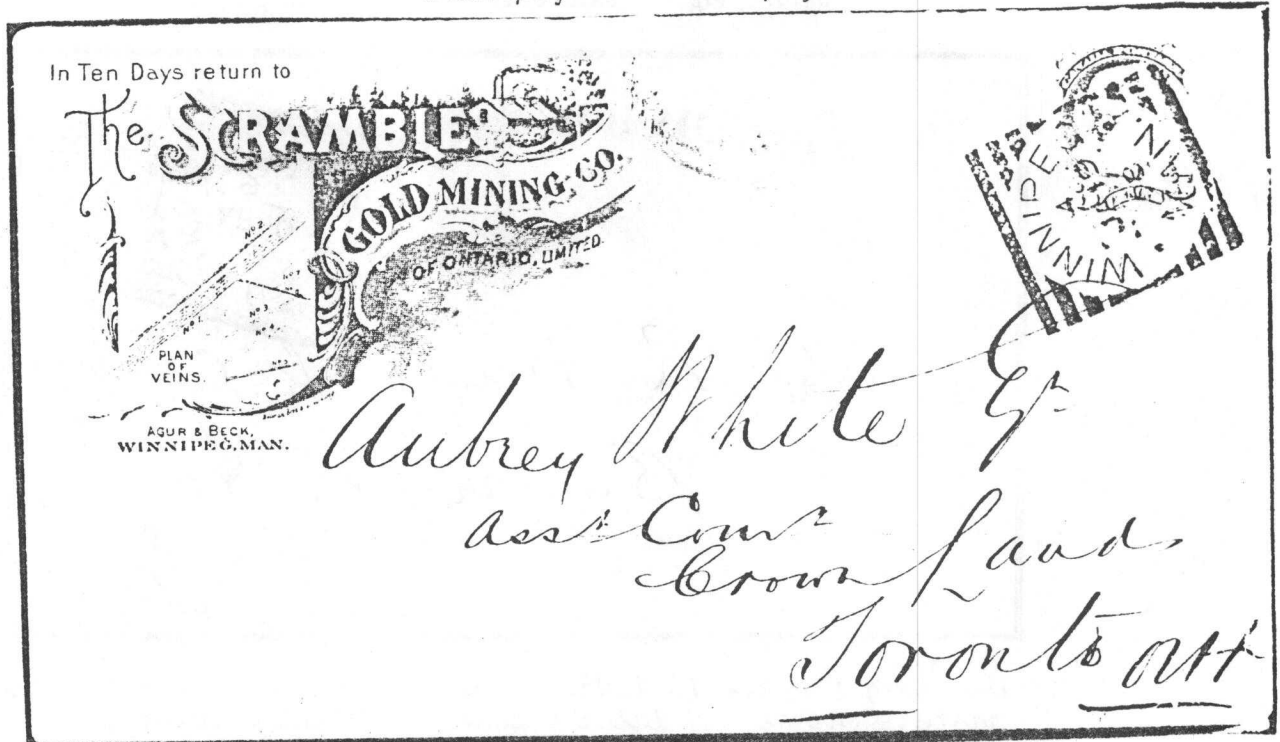 In Ten Days return to
The SCRAMBLE
GOLD MINING CO.
OF ONTARIO, LIMITED.
No 2
No 1
No 3
No 4
PLAN
OF
VEINS.
AGUR & BECK,
WINNIPEG, MAN.
WINNIPEG CAN
Aubrey White Esqr
Asst Comr
Crown Lands
Toronto Ont